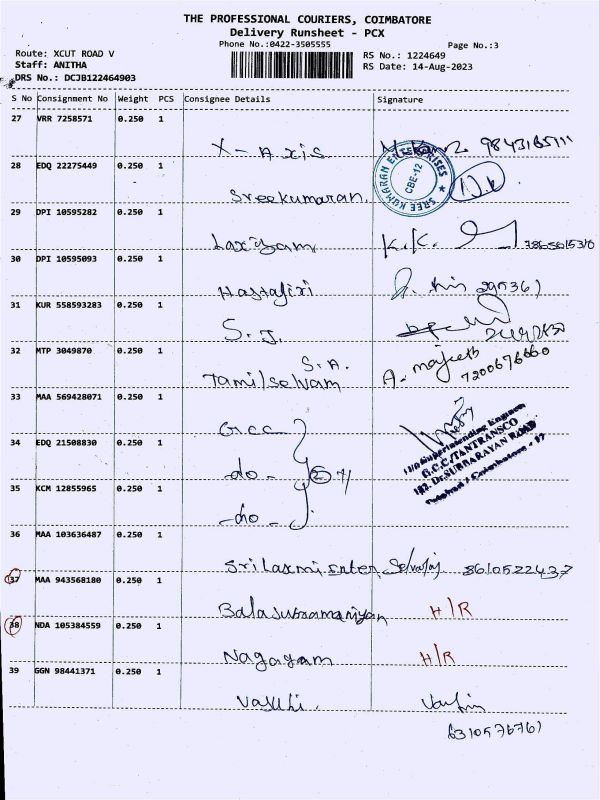 THE PROFESSIONAL COURIERS, COIMBATORE
Delivery Runsheet - PCX
Phone No.:0422-3505555
Page No.:3
Route: XCUT ROAD V
RS No.: 1224649
Staff: ANITHA
RS Date: 14-Aug-2023
DRS No.: DCJB122464903
S No Consignment No Weight PCS Consignee Details Signature
27 VRR 7258571 0.250 1
X-Axis 9843165111
28 EDQ 22275449 0.250 1
SREE KUMARAN ENTERPRISES ★ CBE-12 ★
Sreekumaran
29 DPI 10595282 0.250 1
Laxiyam K.K.
30 DPI 10595093 0.250 1
31 KUR 558593283 0.250 1
S.J.
32 MTP 3049870 0.250 1
S.A.
Tamilselvam A. majeeth 7200676660
33 MAA 569428071 0.250 1
Gcc
34 EDQ 21508830 0.250 1
-do- 2
Superintending Engineer
G.C.C/TANTRANSCO
Dr.SUBBARAYAN ROAD
Coimbatore - 12
35 KCM 12855965 0.250 1
-do-
36 MAA 103636487 0.250 1
Sri Laxmi Enter Selvaraj 8610522437
37 MAA 943568180 0.250 1
Balasubramaniyan H/R
38 NDA 105384559 0.250 1
Nagayam H/R
39 GGN 98441371 0.250 1
6310576761